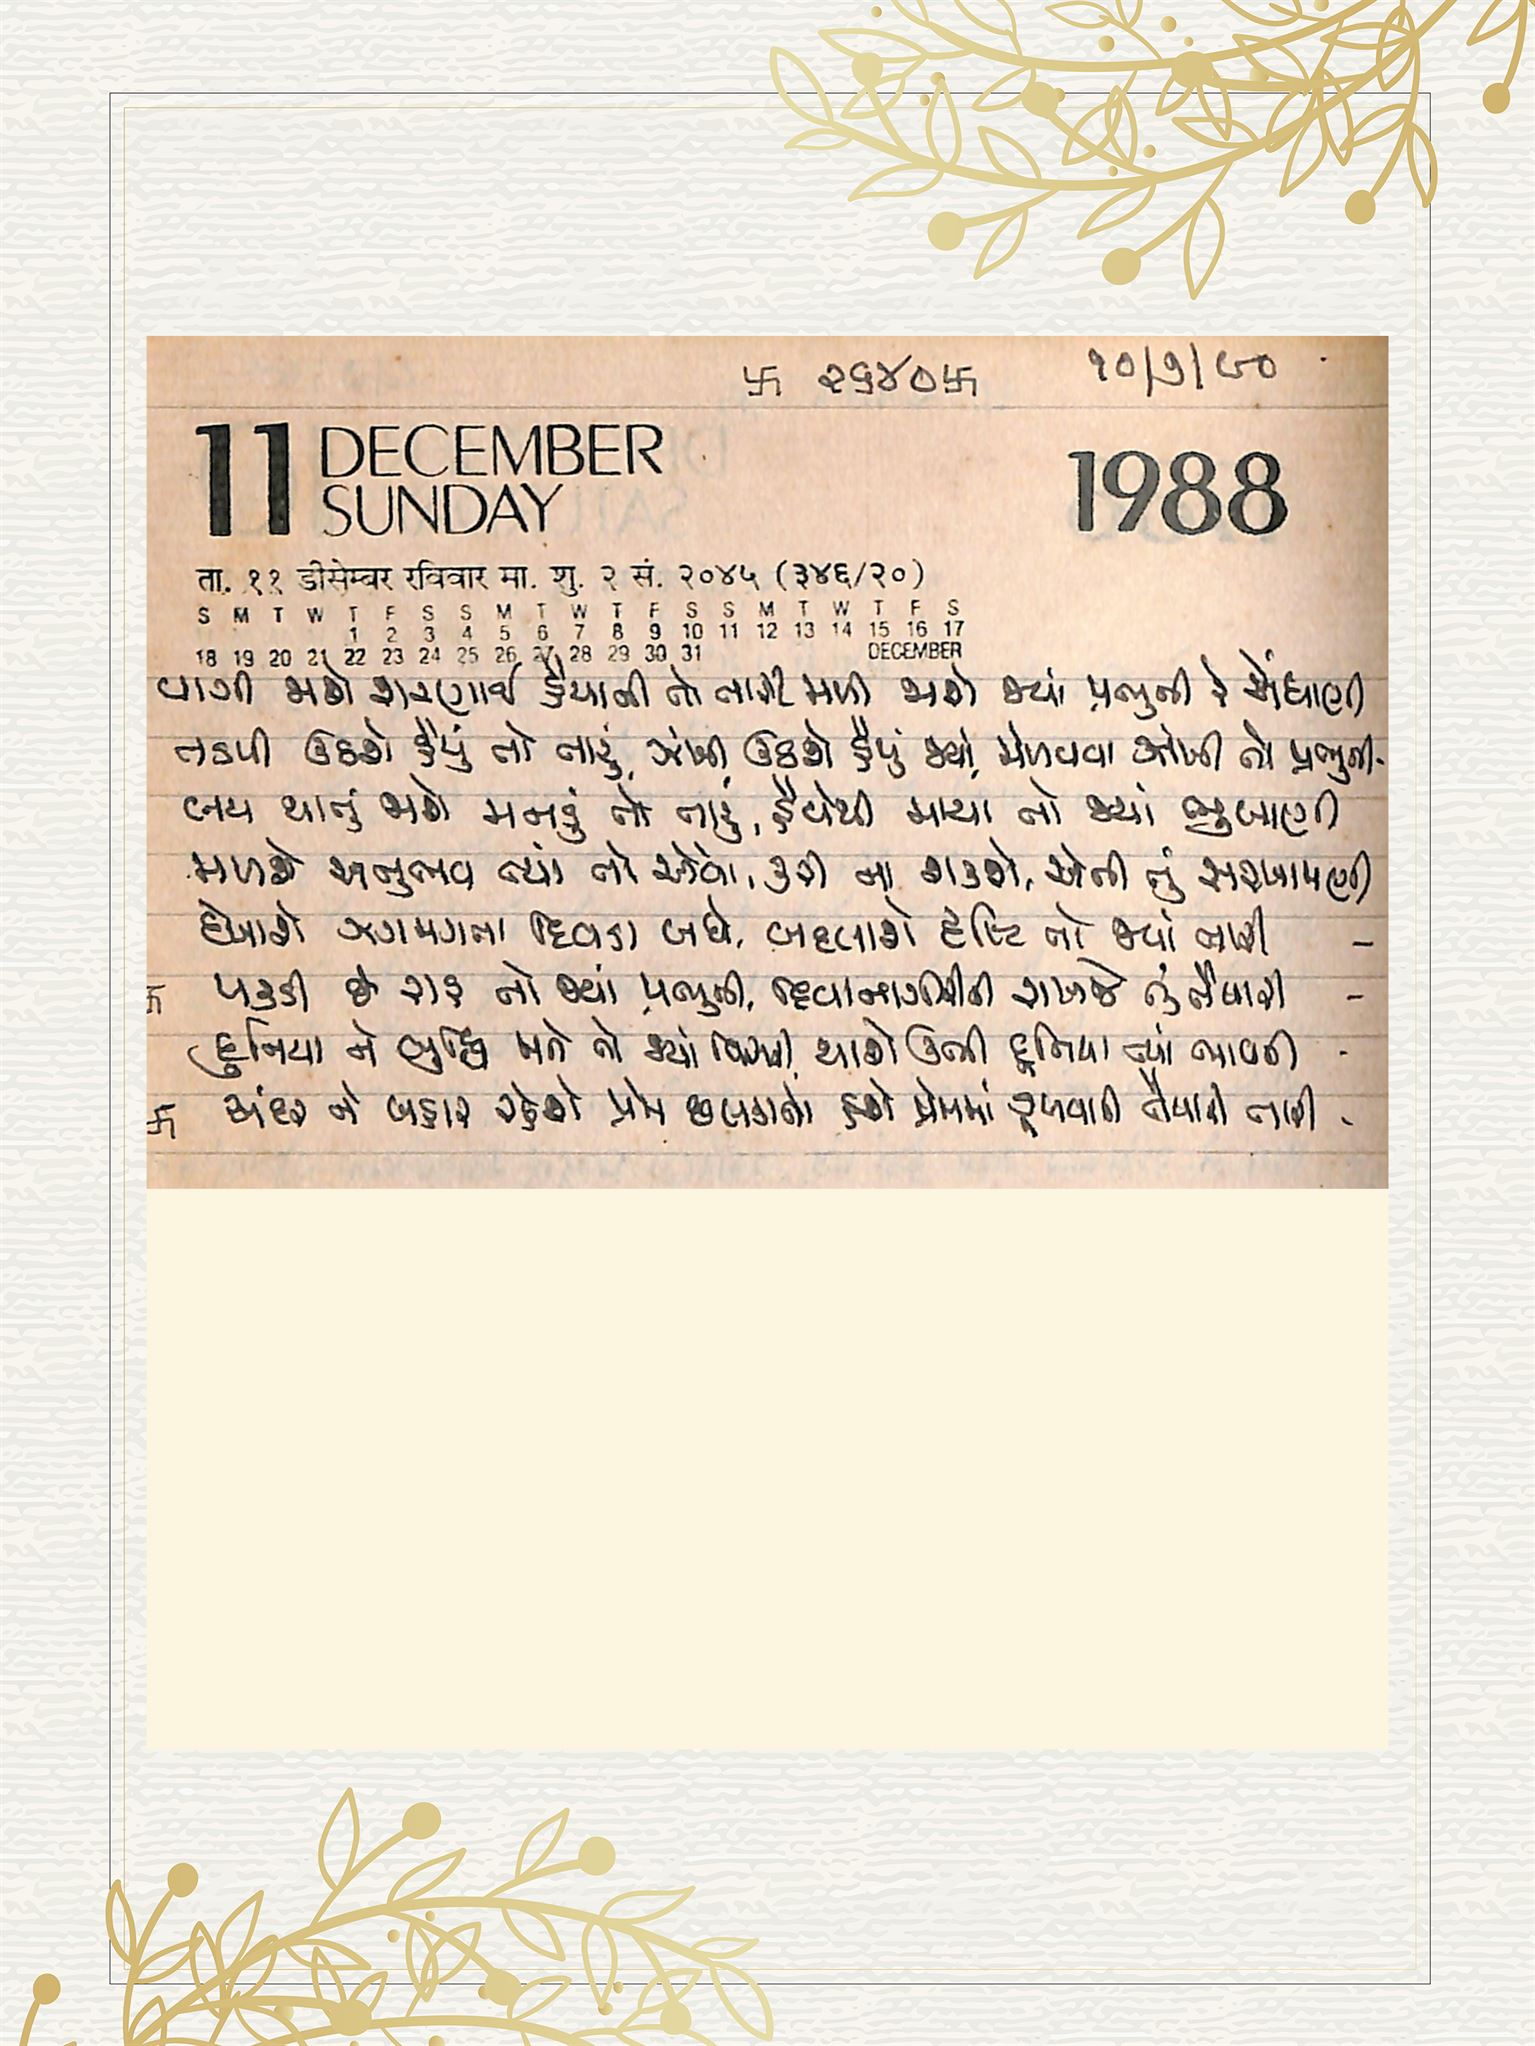 卐 ૨૬૪૦ 卐 ૧૦/૭/૯૦
11 DECEMBER
SUNDAY
1988
ता. ११ डीसेम्बर रविवार मा. शु. २ सं. २०४५ (३४६/२०)
S M T W T F S S M T W T F S S M T W T F S
1 2 3 4 5 6 7 8 9 10 11 12 13 14 15 16 17
18 19 20 21 22 23 24 25 26 27 28 29 30 31 DECEMBER
વાગી જાશે શરણાઈ હૈયાની તો તારી મળી જાશે જ્યાં પ્રભુની રે એંધાણી
તડપી ઉઠશે હૈયું તો તારું, ઝંખી ઉઠશે હૈયું જ્યાં, મેળવવા ઝાંખી તો પ્રભુની-
લય થાતું જાશે મનડું તો તારું, હૈયેથી માયા તો જ્યાં ભુલાણી
મળશે અનુભવ ત્યાં તો એવો, કરી ના શકશે, એની તું સરખામણી
દેખાશે ઝગમગતા દિવડા બધે, બદલાશે દૃષ્ટિ તો જ્યાં તારી –
卐 પકડી છે રાહ તો જ્યાં પ્રભુની, દિવાનગીરીની રાખજે તું તૈયારી –
દુનિયા ને બુદ્ધિ બને તો જ્યાં વિરોધી, થાશે ઉભી દુનિયા ત્યાં ભાવની -
卐 અંદર ને બહાર રહેશે પ્રેમ છલકાતો હશે પ્રેમમાં ડૂબવાની તૈયારી તારી -